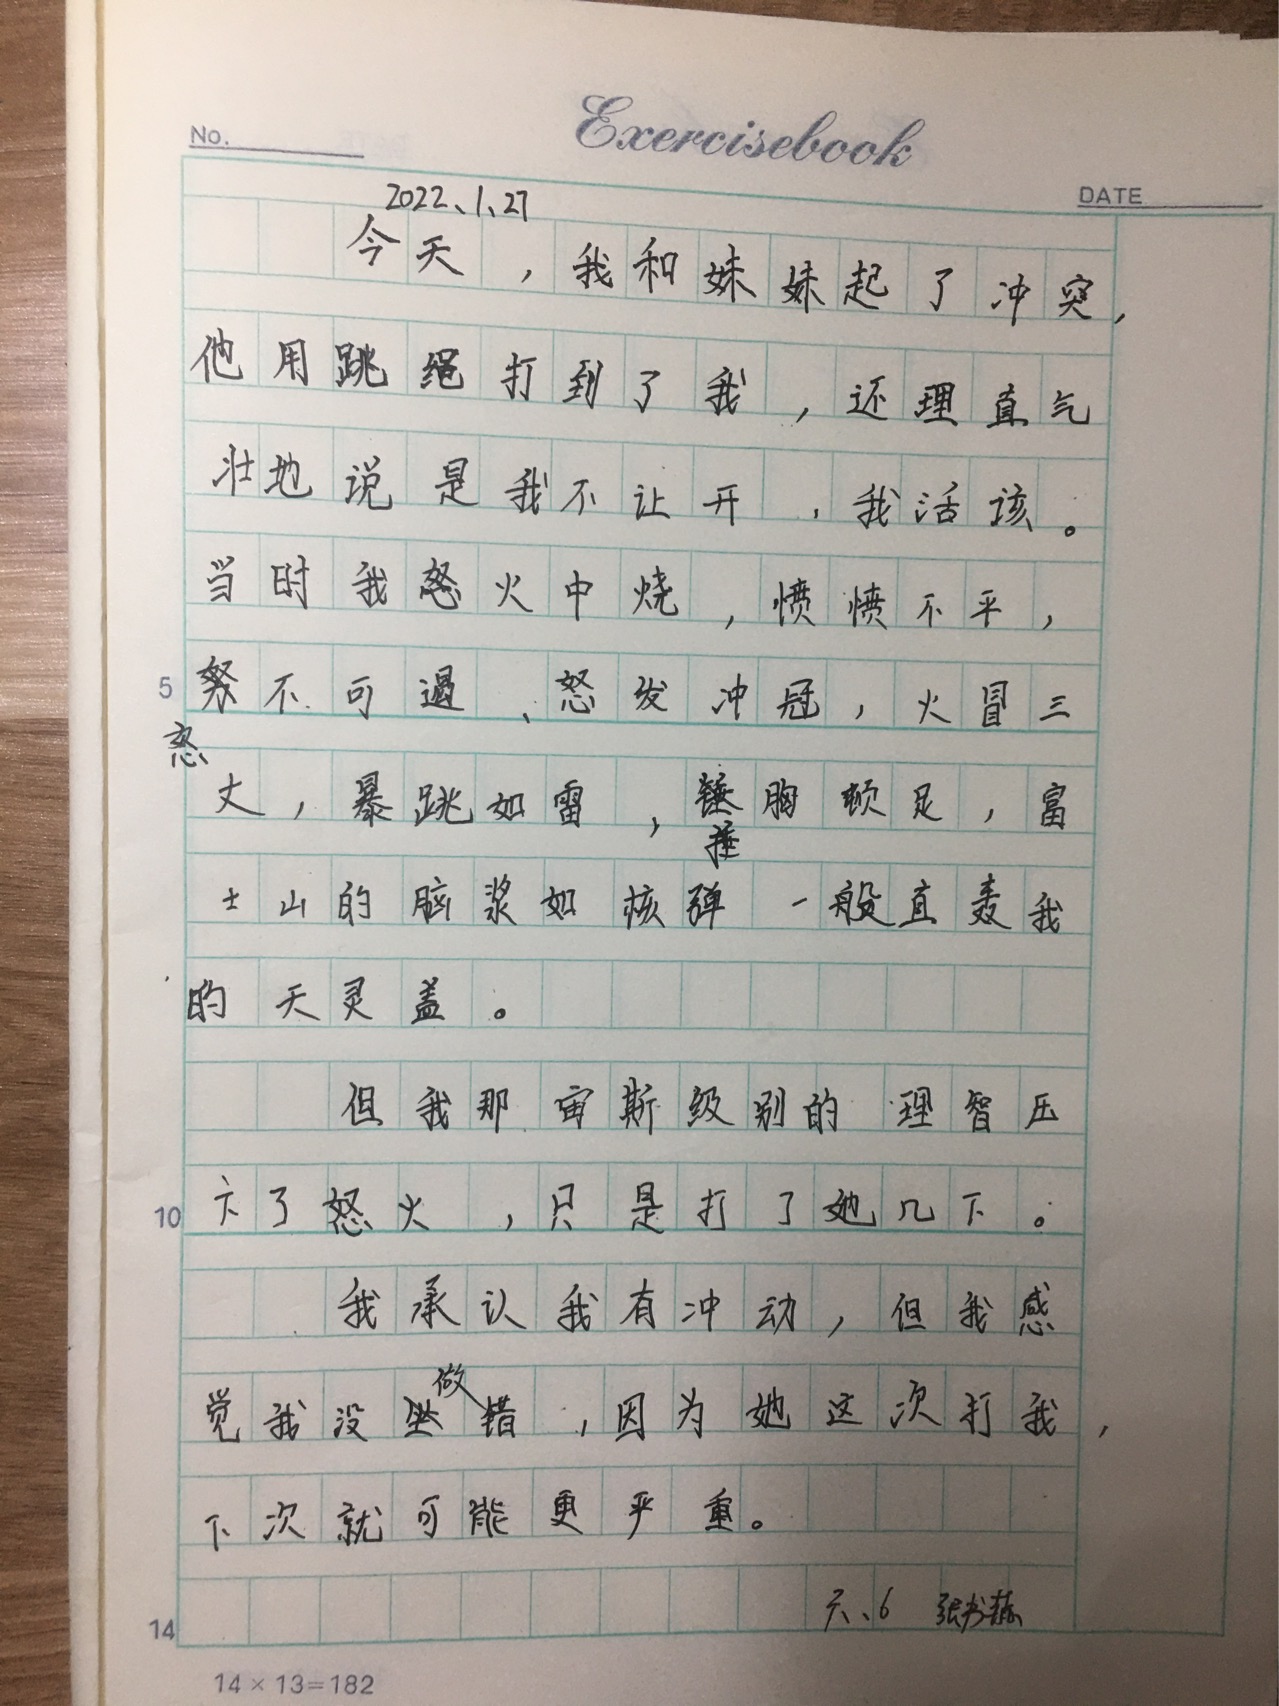 No.
Exercisebook
DATE
2022、1、27
今天，我和妹妹起了冲突，
他用跳绳打到了我，还理直气
壮地说是我不让开，我活该。
当时我怒火中烧，愤愤不平，
5 努不可遏、怒发冲冠，火冒三
怒
丈，暴跳如雷，锤胸顿足，富
捶
士山的脑浆如核弹一般直轰我
的天灵盖。
但我那宙斯级别的理智压
10 下了怒火，只是打了她几下。
我承认我有冲动，但我感
做
觉我没坐错，因为她这次打我，
下次就可能更严重。
六、6 张书
14
14×13=182